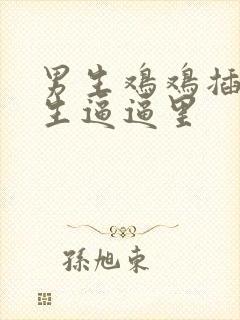 男生鸡鸡插
生逼逼里
孫旭東